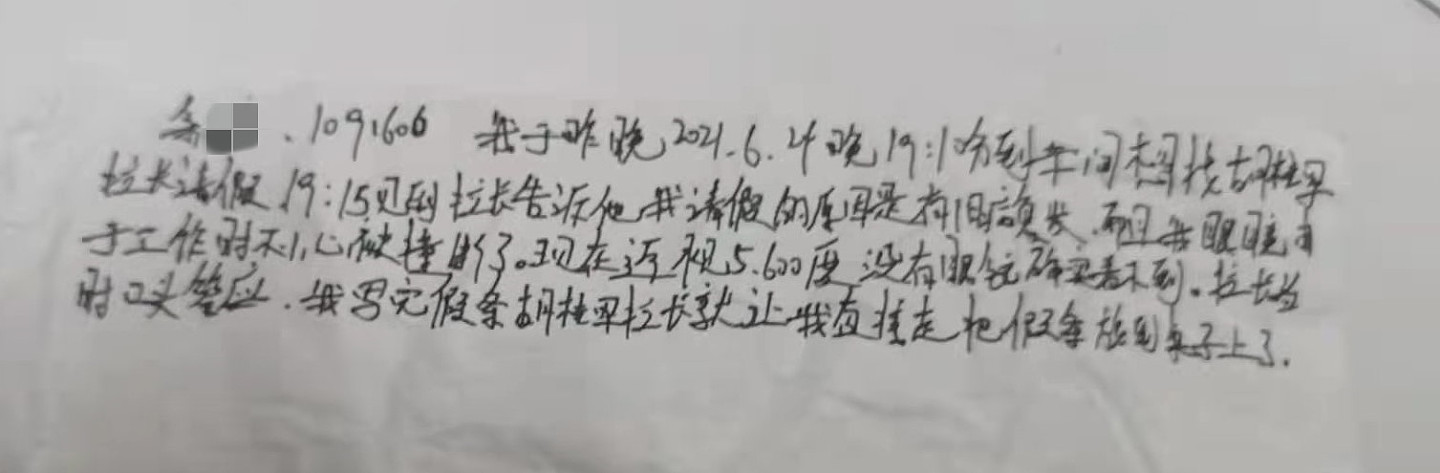 条 .1091606 我于昨晚2021.6.24晚19:10分到车间想找胡桂早
拉长请假 19:15见到拉长告诉他我请假的原因是有旧病复发.而且我眼睛
于工作时不小心被撞断了。现在近视5.600度没有眼镜确实看不到。拉长当
时口头答应.我写完假条胡桂早拉长就让我直接走把假条放到桌子上了.